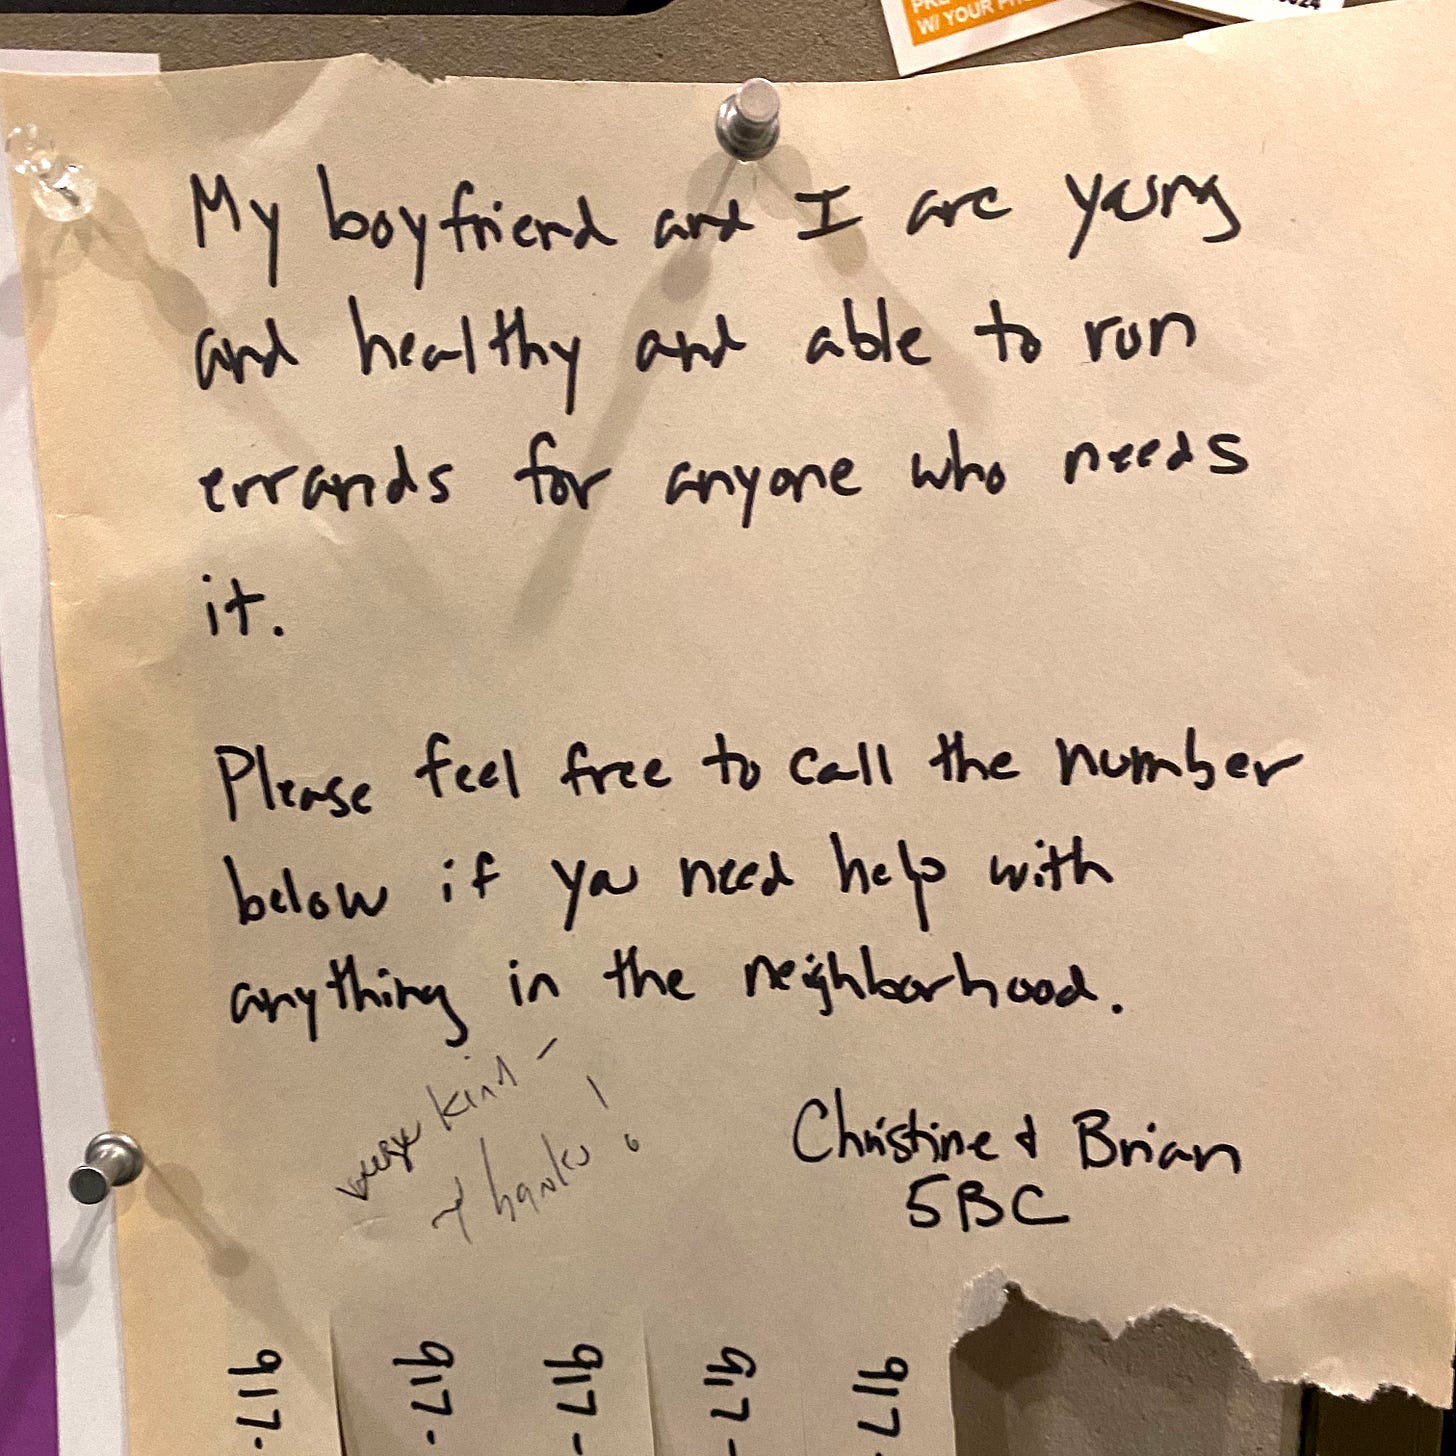 W/ YOUR
My boyfriend and I are young
and healthy and able to run
errands for anyone who needs
it.
Please feel free to call the number
below if you need help with
anything in the neighborhood.
very kind –
thanks!
Christine & Brian
5BC
917-
917-
917-
917-
917-